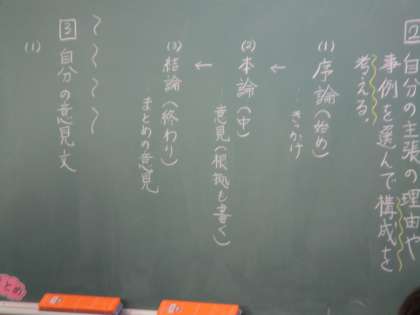 2 自分の主張の理由や
事例を選んで構成を
考える。
(1) 序論(始め)
…きっかけ
↓
(2) 本論(中)
…意見(根拠も書く)
↓
(3) 結論(終わり)
…まとめの意見
3 自分の意見文
(1)
まとめ